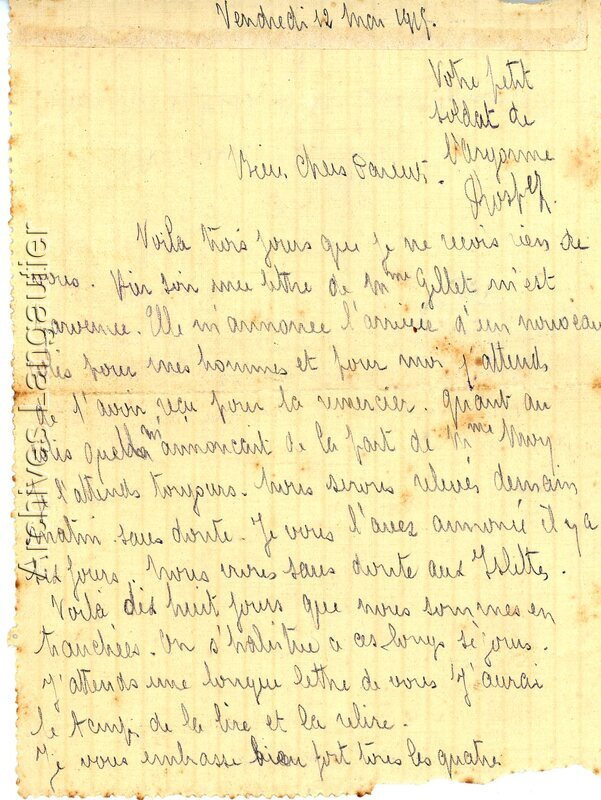 Vendredi 12 Mai 1915.
Votre petit
soldat de
l'argonne
Prosper
Bien Chers Parents.
Voila trois jours que je ne reçois rien de
vous. Hier soir une lettre de Mme Gillet m'est
parvenue. Elle m'annonce l'arrivée d'un nouveau
colis pour mes hommes et pour moi j'attends
de l'avoir reçu pour la remercier. Quant au
colis quelle m'annonçait de la part de Mme
l'attends toujours. Nous serons relevés demain
matin sans doute. Je vous l'avez annoncé il y a
six jours. Nous irons sans doute aux Islettes.
Voilà dix huit jours que nous sommes en
tranchées. On s'habitue a ces longs séjours.
J'attends une longue lettre de vous j'aurai
le temps de la lire et la relire.
Je vous embrasse bien fort tous les quatre